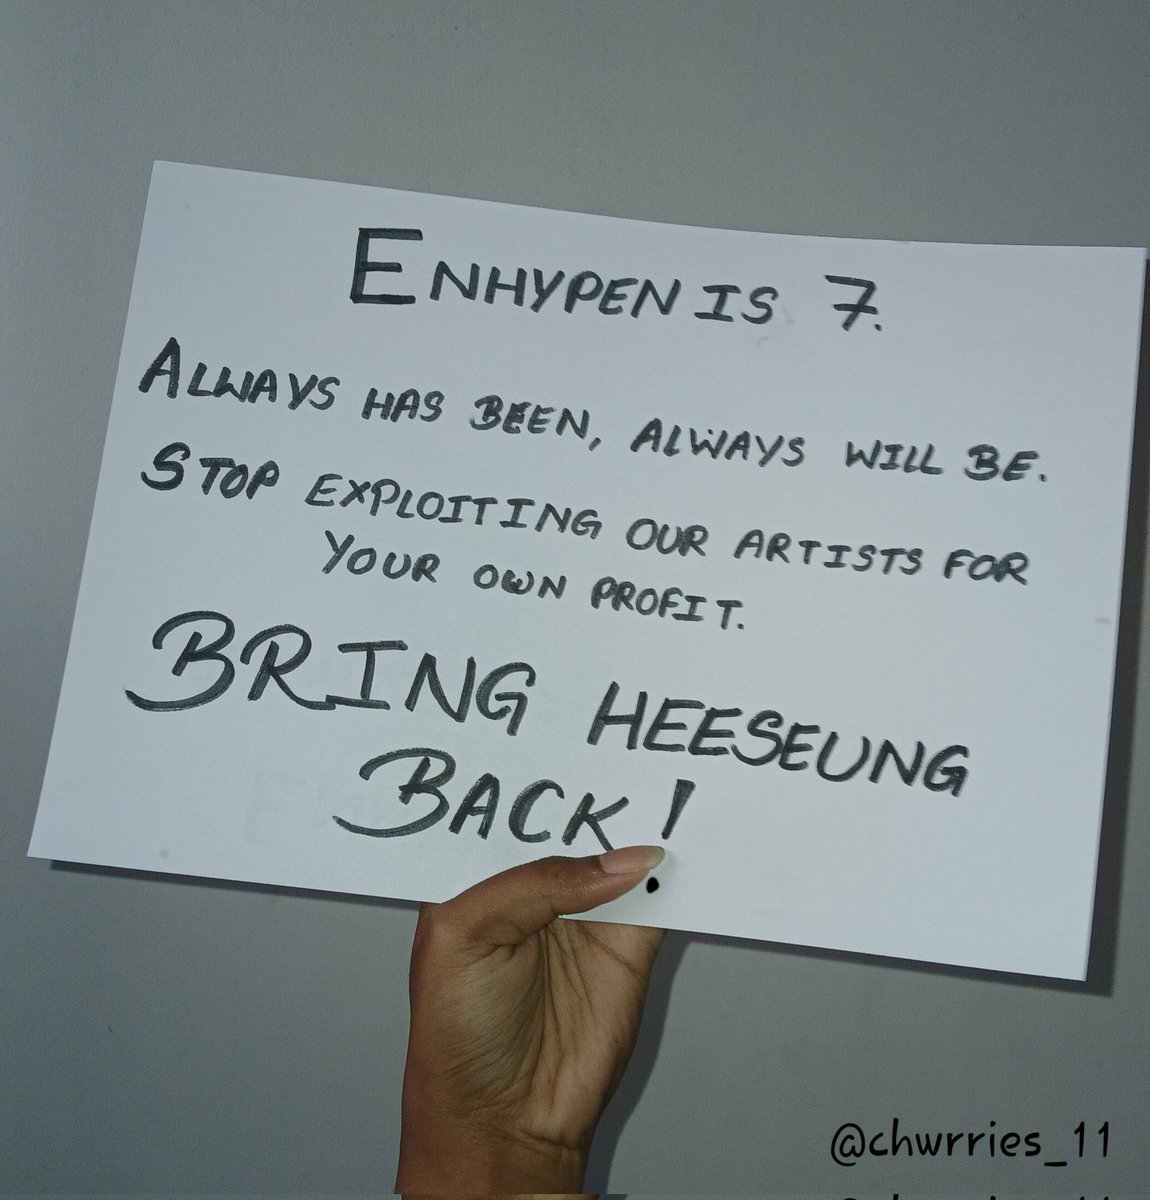 ENHYPEN IS 7.
ALWAYS HAS BEEN, ALWAYS WILL BE.
STOP EXPLOITING OUR ARTISTS FOR
YOUR OWN PROFIT.
BRING HEESEUNG
BACK!
@chwrries_11